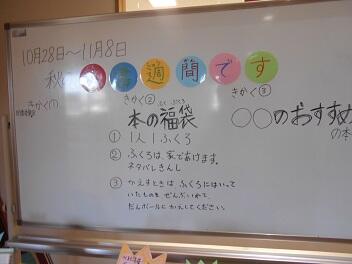 10月28日～11月8日
秋の読書週間です
きかく①
きかく②
ふくぶくろ
本の福袋
① 1人1ふくろ
② ふくろは、家であけます。
ネタバレきんし
③ かえすときは ふくろにはいって
いたものを ぜんぶいれて
だんボールにかえしてください。
きかく③
○○のおすすめ
の本